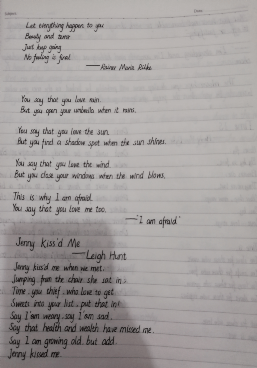 Let everything happen to you
Beauty and terror
Just keep going
No feeling is final
——Rainer Maria Rilke
You say that you love rain.
But you open your umbrella when it rains.
You say that you love the sun.
But you find a shadow spot when the sun shines.
You say that you love the wind.
But you close your windows when the wind blows.
This is why I am afraid.
You say that you love me too.
——"I am afraid"
Jenny Kiss'd Me
——Leigh Hunt
Jenny kiss'd me when we met.
Jumping from the chair she sat in.
Time, you thief, who love to get
Sweets into your list, put that in!
Say I'am weary, say I'am sad.
Say that health and wealth have missed me.
Say I am growing old but add.
Jenny kissed me.